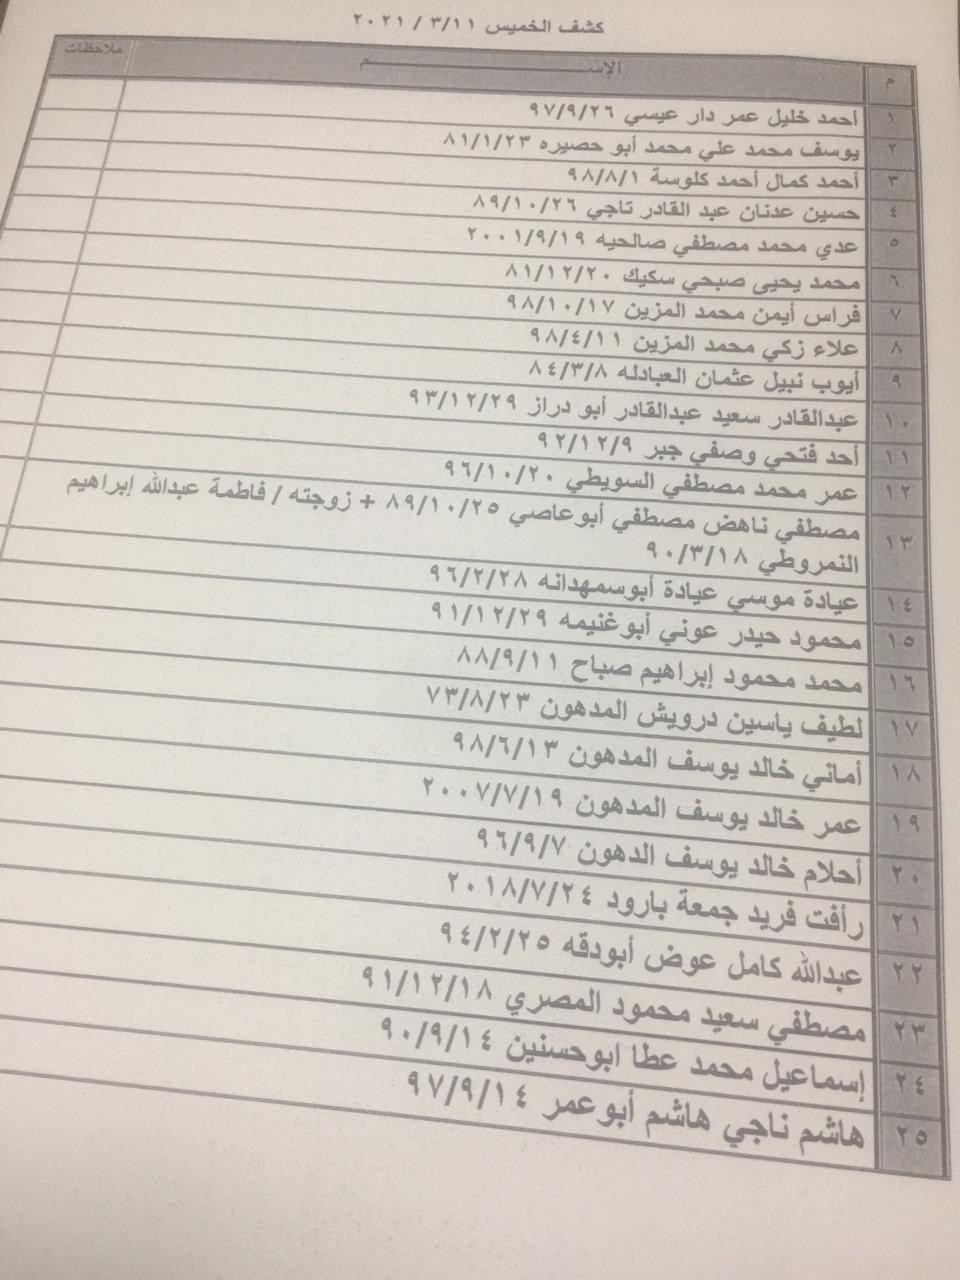 كشف الخميس ٣/١١ / ٢٠٢١
م الإســــــــم ملاحظات
١ أحمد خليل عمر دار عيسي ٩٧/٩/٢٦
٢ يوسف محمد علي محمد أبو حصيره ٨١/١/٢٣
٣ أحمد كمال أحمد كلوسة ٩٨/٨/١
٤ حسين عدنان عبد القادر تاجي ٨٩/١٠/٢٦
٥ عدي محمد مصطفي صالحيه ٢٠٠١/٩/١٩
٦ محمد يحيى صبحي سكيك ٨١/١٢/٢٠
٧ فراس أيمن محمد المزين ٩٨/١٠/١٧
٨ علاء زكي محمد المزين ٩٨/٤/١١
٩ أيوب نبيل عثمان العبادله ٨٤/٣/٨
١٠ عبدالقادر سعيد عبدالقادر أبو دراز ٩٣/١٢/٢٩
١١ أحد فتحي وصفي جبر ٩٢/١٢/٩
١٢ عمر محمد مصطفي السويطي ٩٦/١٠/٢٠
١٣ مصطفي ناهض مصطفي أبوعاصي ٨٩/١٠/٢٥ + زوجته / فاطمة عبدالله إبراهيم
النمروطي ٩٠/٣/١٨
١٤ عيادة موسي عيادة أبوسمهدانه ٩٦/٢/٢٨
١٥ محمود حيدر عوني أبوغنيمه ٩١/١٢/٢٩
١٦ محمد محمود إبراهيم صباح ٨٨/٩/١١
١٧ لطيف ياسين درويش المدهون ٧٣/٨/٢٣
١٨ أماني خالد يوسف المدهون ٩٨/٦/١٣
١٩ عمر خالد يوسف المدهون ٢٠٠٧/٧/١٩
٢٠ أحلام خالد يوسف الدهون ٩٦/٩/٧
٢١ رأفت فريد جمعة بارود ٢٠١٨/٧/٢٤
٢٢ عبدالله كامل عوض أبودقه ٩٤/٢/٢٥
٢٣ مصطفي سعيد محمود المصري ٩١/١٢/١٨
٢٤ إسماعيل محمد عطا ابوحسنين ٩٠/٩/١٤
٢٥ هاشم ناجي هاشم أبوعمر ٩٧/٩/١٤